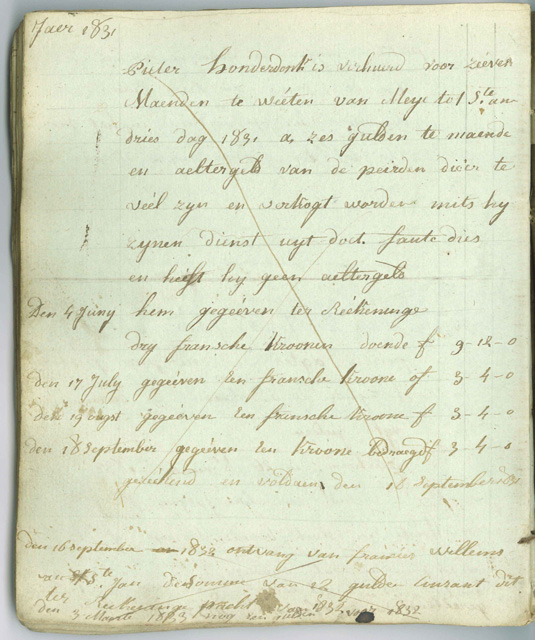 Jaer 1831
Pieter honderdonk is verhuerd voor zeéven
Maenden te wéeten van Meye tot St. an
dries dag 1831 a zes gulden te maende
en aeltergeld van de peirden die er te
véél zyn en verkogt worden mits hy
zynen dienst uyt doet. faute dies
en heeft hy geen aeltergeld
Den 4 Juny hem gegeéven ter Réékeninge
dry fransche kroonen doende f 9-12-0
den 17 July gegeéven een fransche kroone of 3-4-0
den 19 ougst gegeéven een fransche kroone f 3-4-0
den 18 September gegeéven een kroone bedraegd f 3-4-0
en voldaen den 18 September 1831
den 16 September 1832 ontvang van francies willems
van St. Jan de somme van 12 gulden courant dit
ter Reekeninge pacht van 1832 voor 1832
den 3 1833 nog een gulden